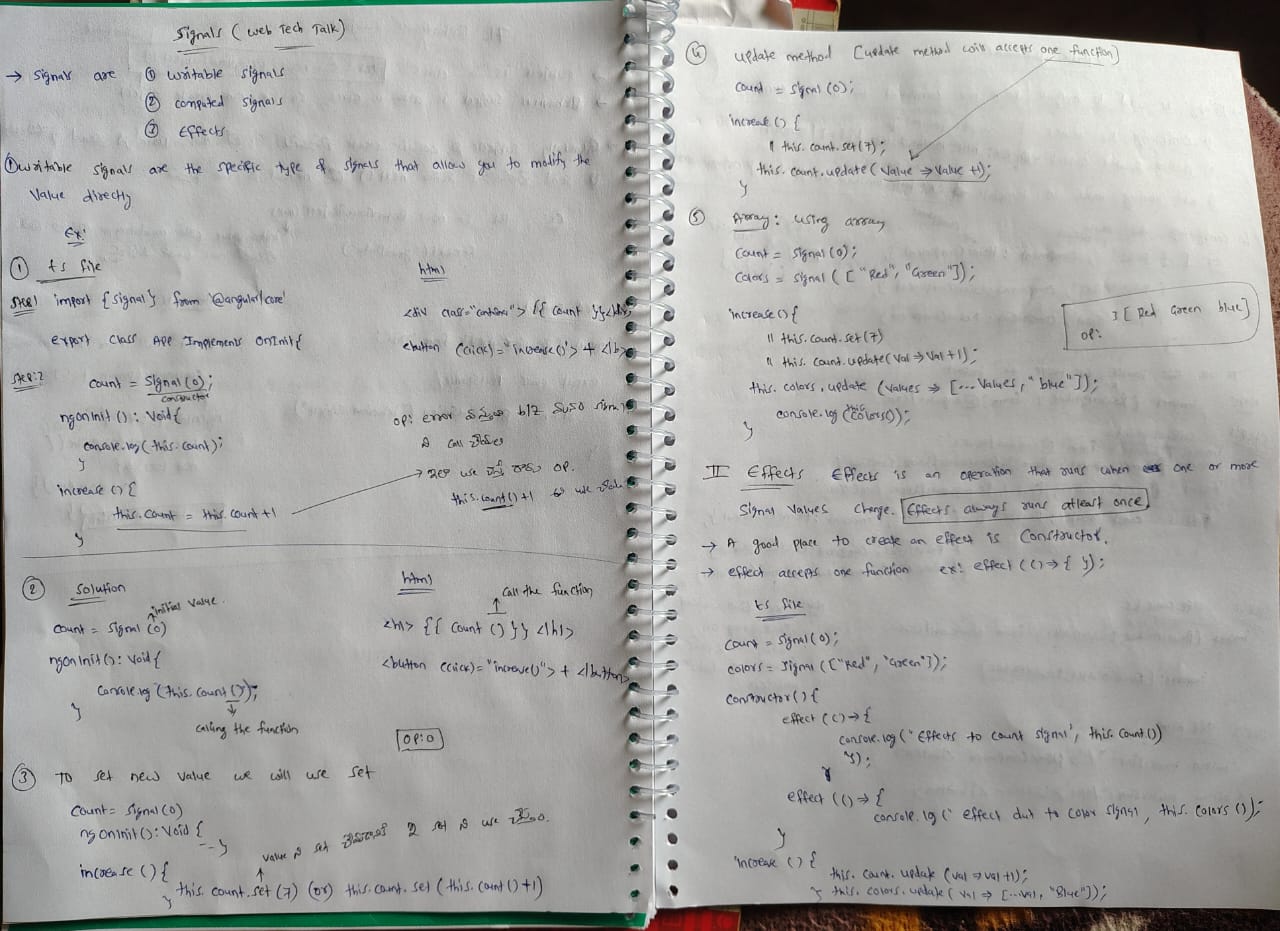 Signals (Web Tech Talk)
→ Signals are ① writable signals
② computed signals
③ Effects
① writable signals are the specific type of signals that allow you to modify the
Value directly
Ex:
① ts file
Step 1 import {signal} from '@angular/core'
export class App Implements OnInit {
Step: 2 count = signal (0);
constructor
ngOnInit () : Void {
console.log (this.count);
}
increase () {
this.count = this.count + 1
}
html
<div class="container"> {{ count }} </div>
<button (click) = "increase()"> + </b>
op: error b/z signal
call
→ use op.
this.count() + 1 use
② Solution
initial value.
count = signal (0)
ngOnInit () : Void {
Console.log (this.count ());
}
calling the function
html
call the function
<h1> {{ count () }} </h1>
<button (click) = "increase()"> + </button>
OP: 0
③ To set new value we will use set
Count = signal (0)
ngOnInit () : Void {
-- }
value ని set set ని use
increase () {
this.count.set (7) (or) this.count.set (this.count () + 1)
}
④ update method [update method will accepts one function]
count = signal (0);
increase () {
// this.count.set (7);
this.count.update (value => value + 1);
}
⑤ Array: using array
Count = signal (0);
Colors = signal ( [ "Red", "Green" ] );
increase () {
// this.count.set (7)
// this.count.update (val => val + 1);
this.colors.update (values => [... values, "blue" ]);
console.log (this.colors());
}
3 [ Red Green blue ]
OP:
II Effects Effects is an operation that runs when one or more
Signal values change. Effects always runs atleast once
→ A good place to create an effect is Constructor.
→ effect accepts one function ex: effect (() => { });
ts file
count = signal (0);
colors = signal (["Red", "Green"]);
constructor () {
effect (() => {
console.log ("Effects to count signal", this.count ())
});
effect (() => {
console.log (" effect due to color signal, this.colors ());
}
increase () {
this.count.update (val => val + 1);
} this.colors.update (val => [...val, "Blue"]);